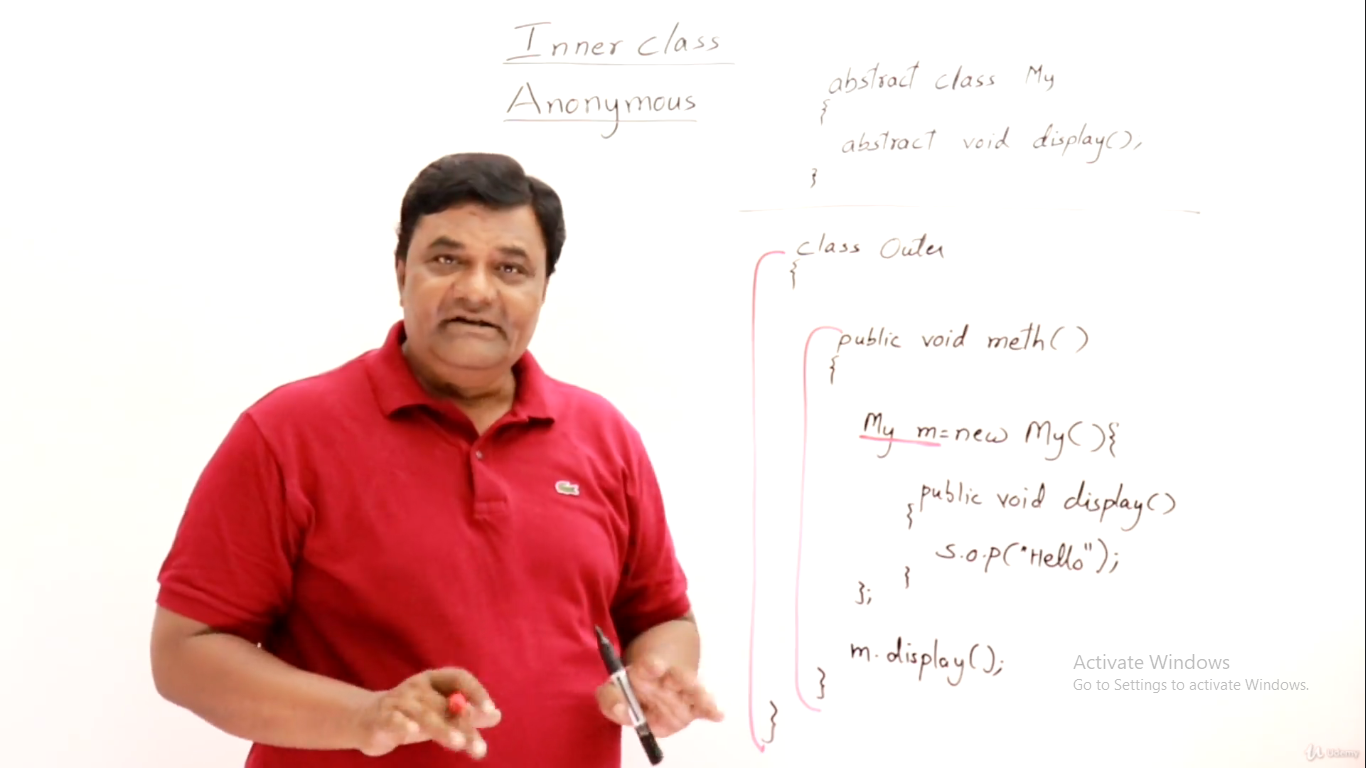 Inner class
Anonymous
abstract class My
{
abstract void display();
}
class Outer
{
public void meth()
{
My m=new My(){
public void display()
{
S.O.P("Hello");
}
};
m.display();
}
}
Activate Windows
Go to Settings to activate Windows.
Udemy